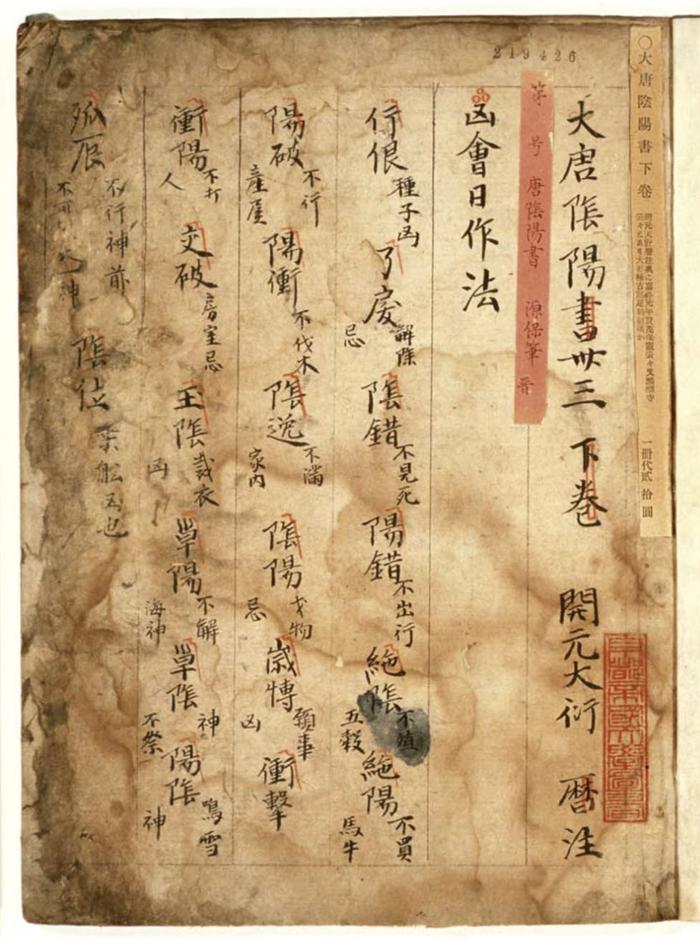 219426
〇大唐陰陽書下卷
一冊代貳拾圓
大唐陰陽書卅三 下巻 開元大衍 暦注
第 号 唐陰陽書 源保筆
凶會日作法
行佷 種子凶 了戾 解除忌 陰錯 不見死 陽錯 不出行 絶陰 不殖五穀 絶陽 不買馬牛
陽破 不行産屋 陽衝 不伐木 陰 不滿家内 陰陽 物忌 歳博 領事凶 衝撃
衝陽 不打人 交破 室忌 陰 裁衣凶 單陽 不解海神 單陰 神不祭 陽陰 鳴雪神
孤辰 不行神前 不可神 陰位 乗舩凶也